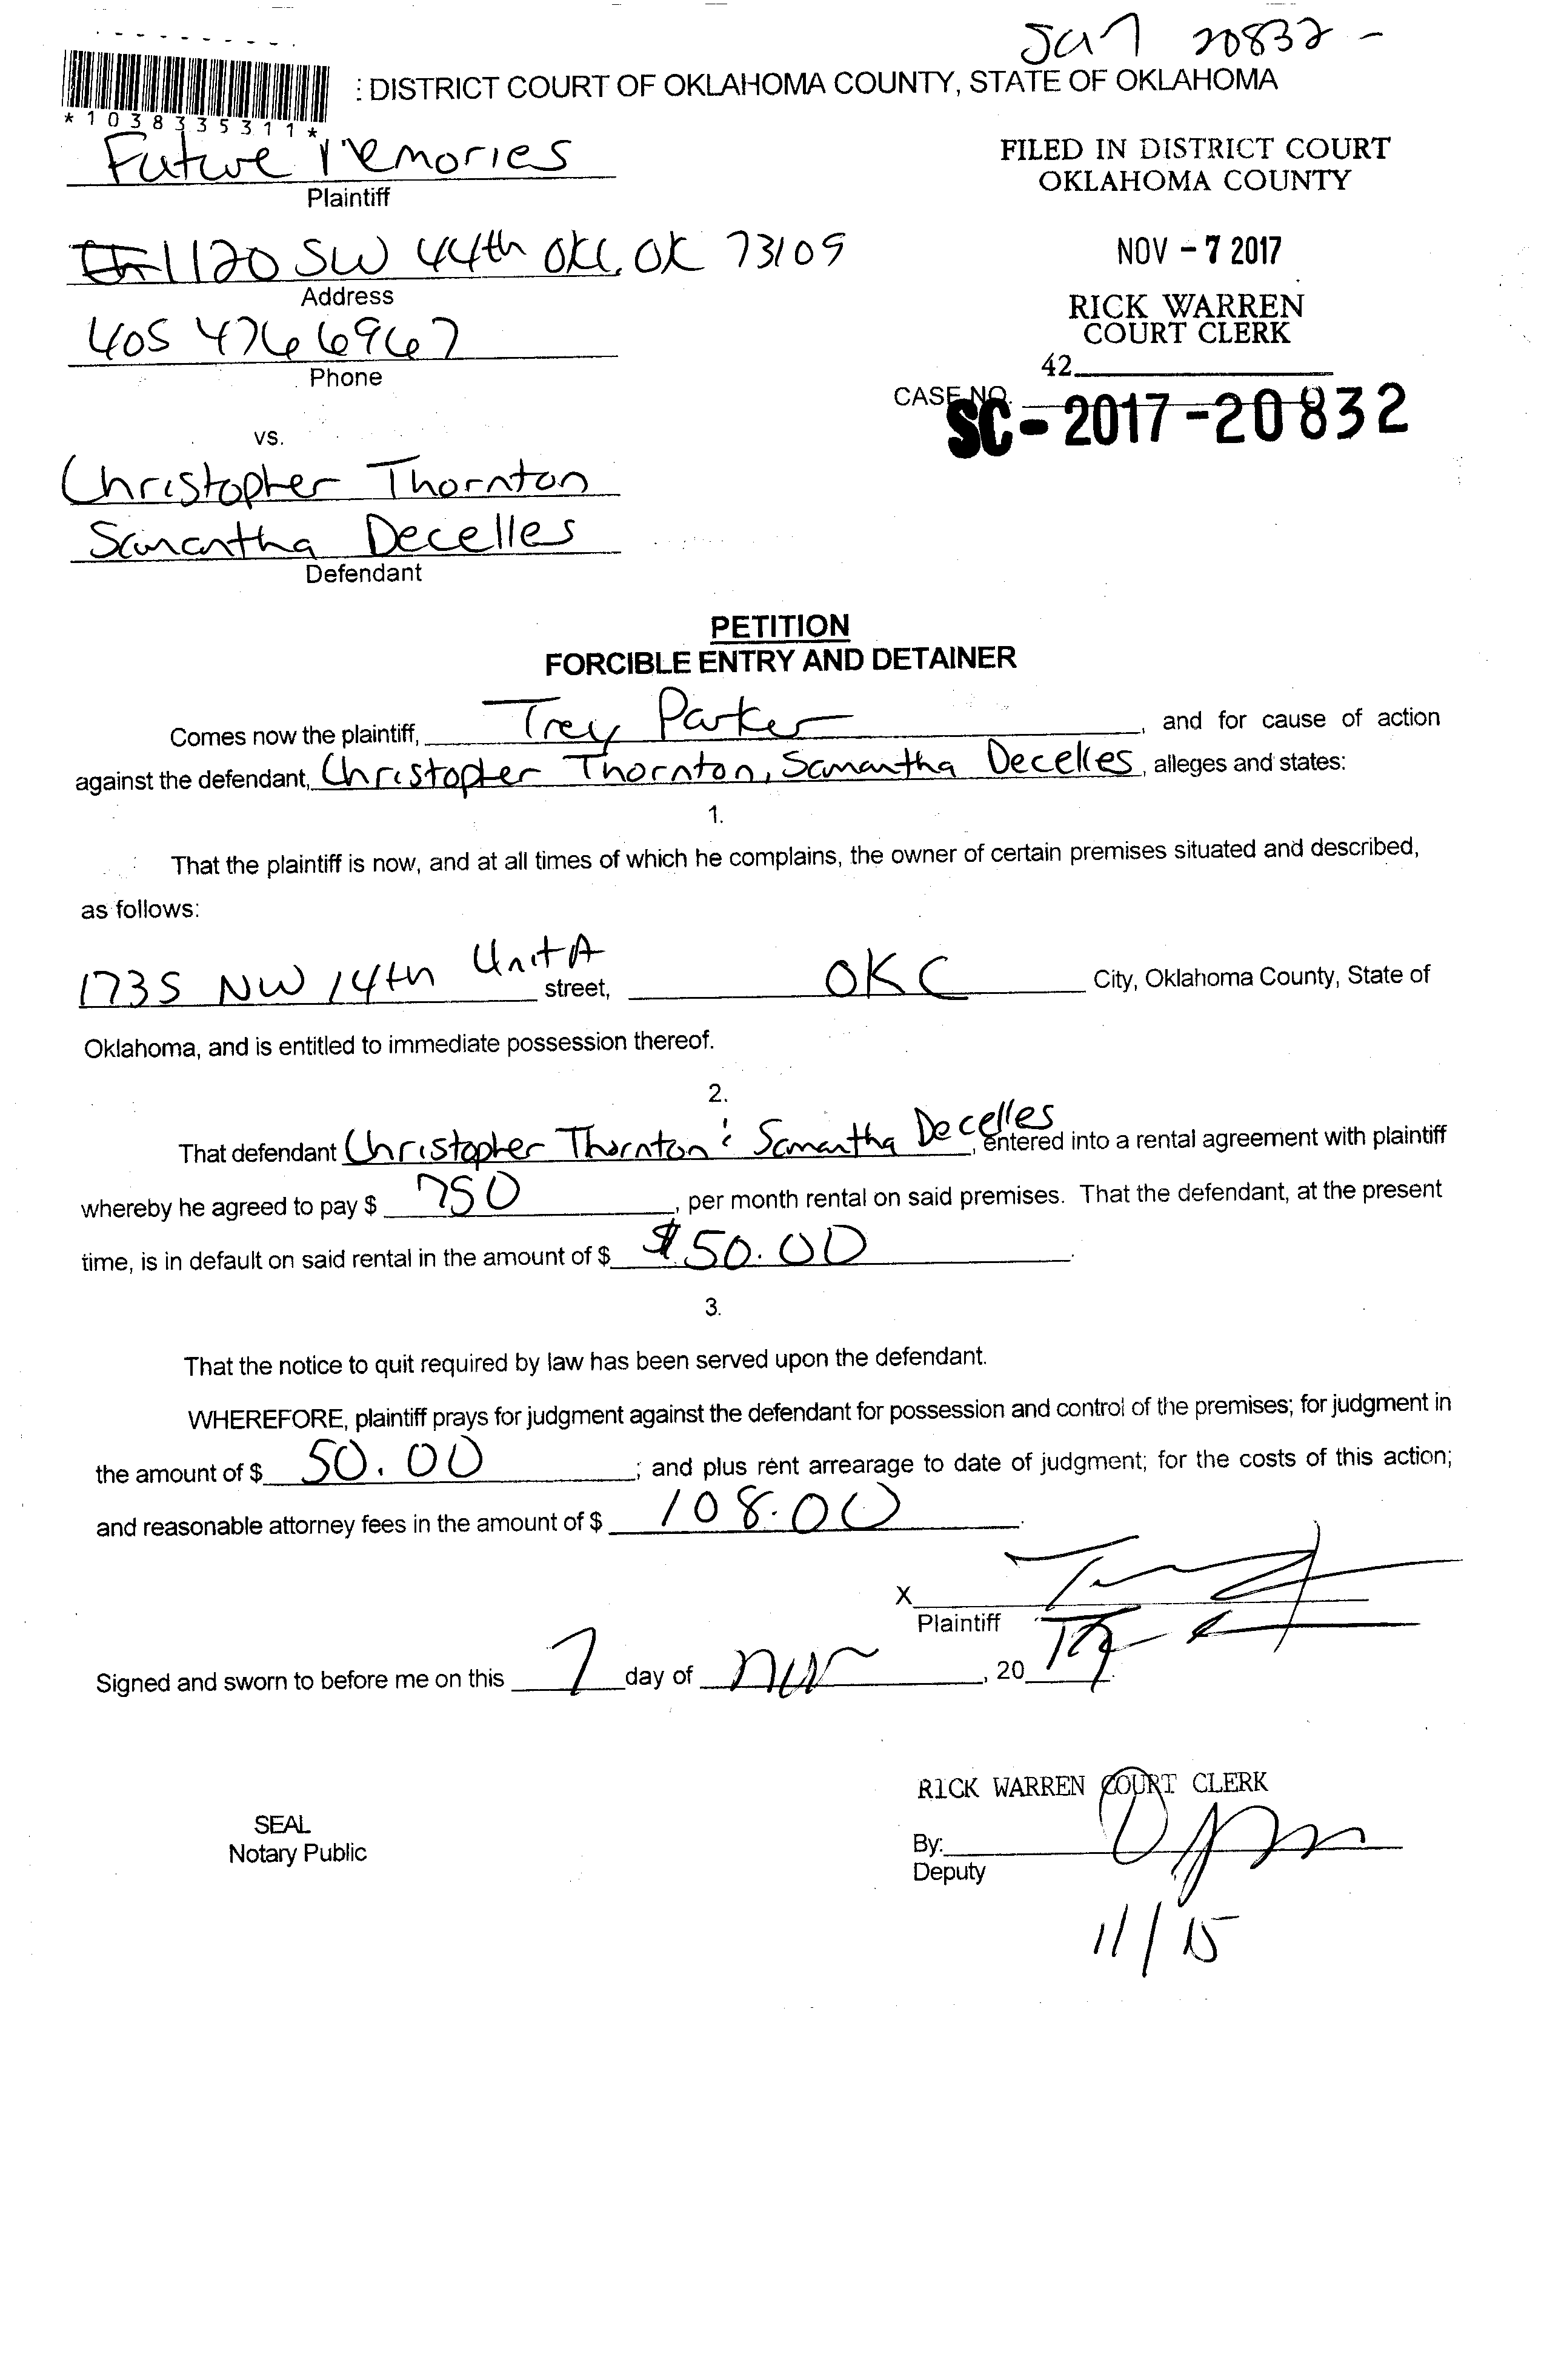 SC17 20832 -
: DISTRICT COURT OF OKLAHOMA COUNTY, STATE OF OKLAHOMA
*1038335311*
Future Memories
Plaintiff
FILED IN DISTRICT COURT
OKLAHOMA COUNTY
1120 SW 44th OKC, OK 73109
Address
NOV - 7 2017
405 476 6967
Phone
RICK WARREN
COURT CLERK
42
CASE NO.
SC - 2017 - 20832
vs.
Christopher Thornton
Samantha Decelles
Defendant
PETITION
FORCIBLE ENTRY AND DETAINER
Comes now the plaintiff, Trey Parker, and for cause of action
against the defendant, Christopher Thornton, Samantha Decelles, alleges and states:
1.
That the plaintiff is now, and at all times of which he complains, the owner of certain premises situated and described,
as follows:
1735 NW 14th Unit A street, OKC City, Oklahoma County, State of
Oklahoma, and is entitled to immediate possession thereof.
2.
That defendant Christopher Thornton & Samantha Decelles, entered into a rental agreement with plaintiff
whereby he agreed to pay $ 750, per month rental on said premises. That the defendant, at the present
time, is in default on said rental in the amount of $ $50.00.
3.
That the notice to quit required by law has been served upon the defendant.
WHEREFORE, plaintiff prays for judgment against the defendant for possession and control of the premises; for judgment in
the amount of $ 50.00; and plus rent arrearage to date of judgment; for the costs of this action;
and reasonable attorney fees in the amount of $ 108.00.
X
Plaintiff
Signed and sworn to before me on this 7 day of Nov, 20 17.
RICK WARREN COURT CLERK
SEAL
Notary Public
By:
Deputy
11/15